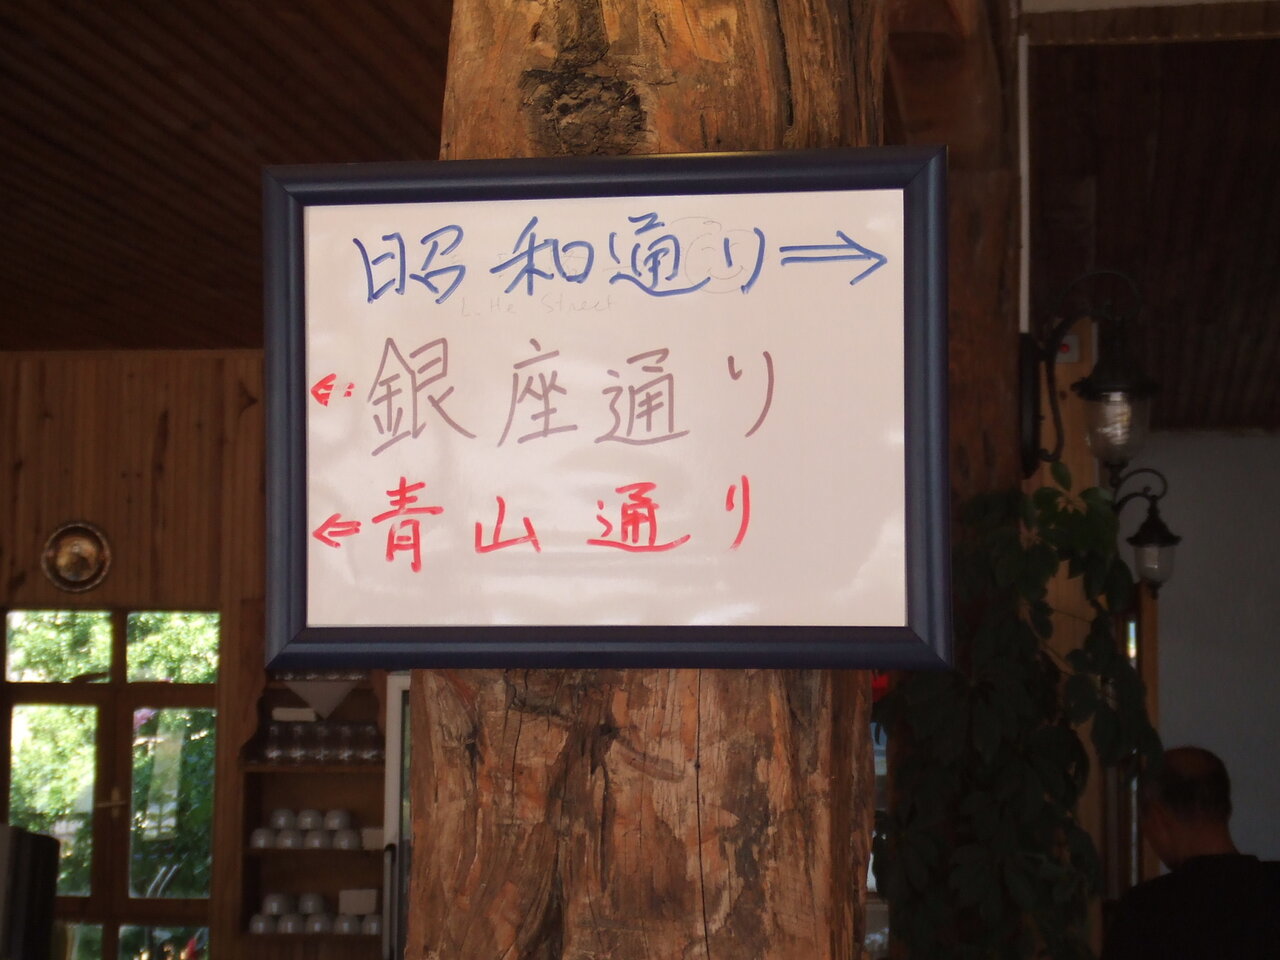 昭和通り⇒
Little Street
⇐銀座通り
⇐青山通り